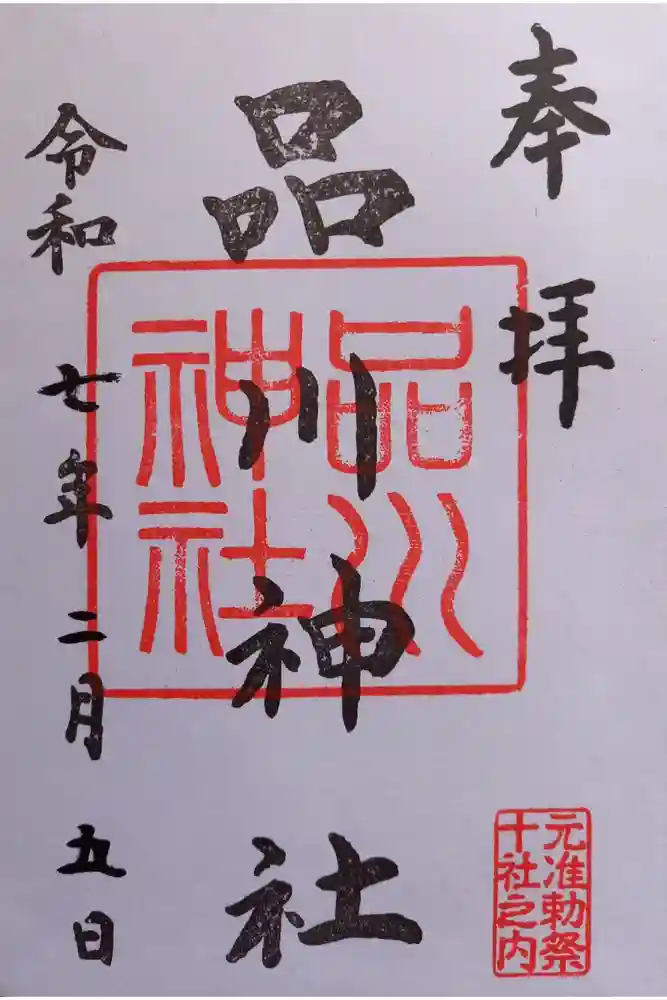 奉拝
品川神社
品川
神社
令和七年二月五日
元准勅祭
十社之内